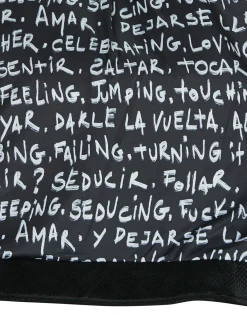 R, AMAR, DEJARSE L
HER, CELEBRATING, LOVIN
SENTIR, SALTAR, TOCAR
FEELING, JUMPING, TOUCHIN
YAR, DARLE LA VUELTA, A
BING, FAILING, TURNING IT
IR? SEDUCIR, FOLLAR,
EEPING, SEDUCING, FUCKIN
AMAR, Y DEJARSE LL